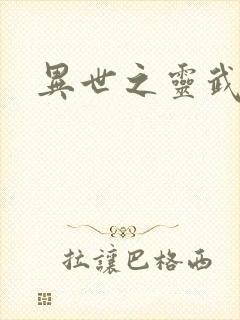 異世之靈武
拉讓巴格西